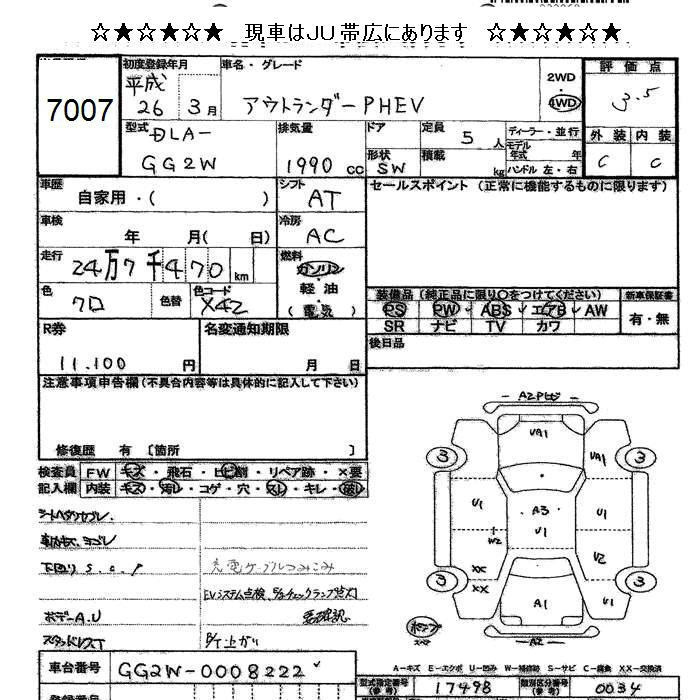 ☆★☆★☆★ 現車はJU帯広にあります ☆★☆★☆★
7007
初度登録年月
平成
26 3月
車名・グレード
アウトランダーPHEV
2WD
4WD
評価点
3.5
外装 内装
C C
型式 DLA-
GG2W
排気量
1990 cc
ドア
形状
SW
定員 5 人
積載 kg
ディーラー・並行
モデル年式 年
ハンドル 左・右
車歴
自家用・( )
シフト
AT
セールスポイント(正常に機能するものに限ります)
車検
年 月( 日)
冷房
AC
走行
24万7千470 km
燃料
ガソリン
軽油
(電気)
色
クロ
色替
色コード
X42
装備品(純正品に限り○をつけてください)
PS PW ABS エアB AW
SR ナビ TV カワ
新車保証書
有・無
R券
11.100 円
名変通知期限
月 日
後日品
注意事項申告欄(不具合内容等は具体的に記入して下さい)
修復歴 有 〔箇所 〕
検査員 FW キズ・飛石・ヒビ割・リペア跡・×要
記入欄 内装 キズ・汚レ・コゲ・穴・スレ・キレ・破レ
シートヘタリヤブレ.
下回り S.C.P
充電ケーブルつみこみ
EVシステム点検、
ボデーA.U
スタッドレスT
車台番号 GG2W-0008222
A2 Pヒビ
UA1
UA1
3 3
U1
A3
U1
U1
W2
U2
XX
XX
3 3
A1
U1
A2
A-キズ E-エクボ U-凹み W-補修跡 S-サビ C-腐食 XX-交換済
型式指定番号(参考) 17498
類別区分番号(参考) 0034